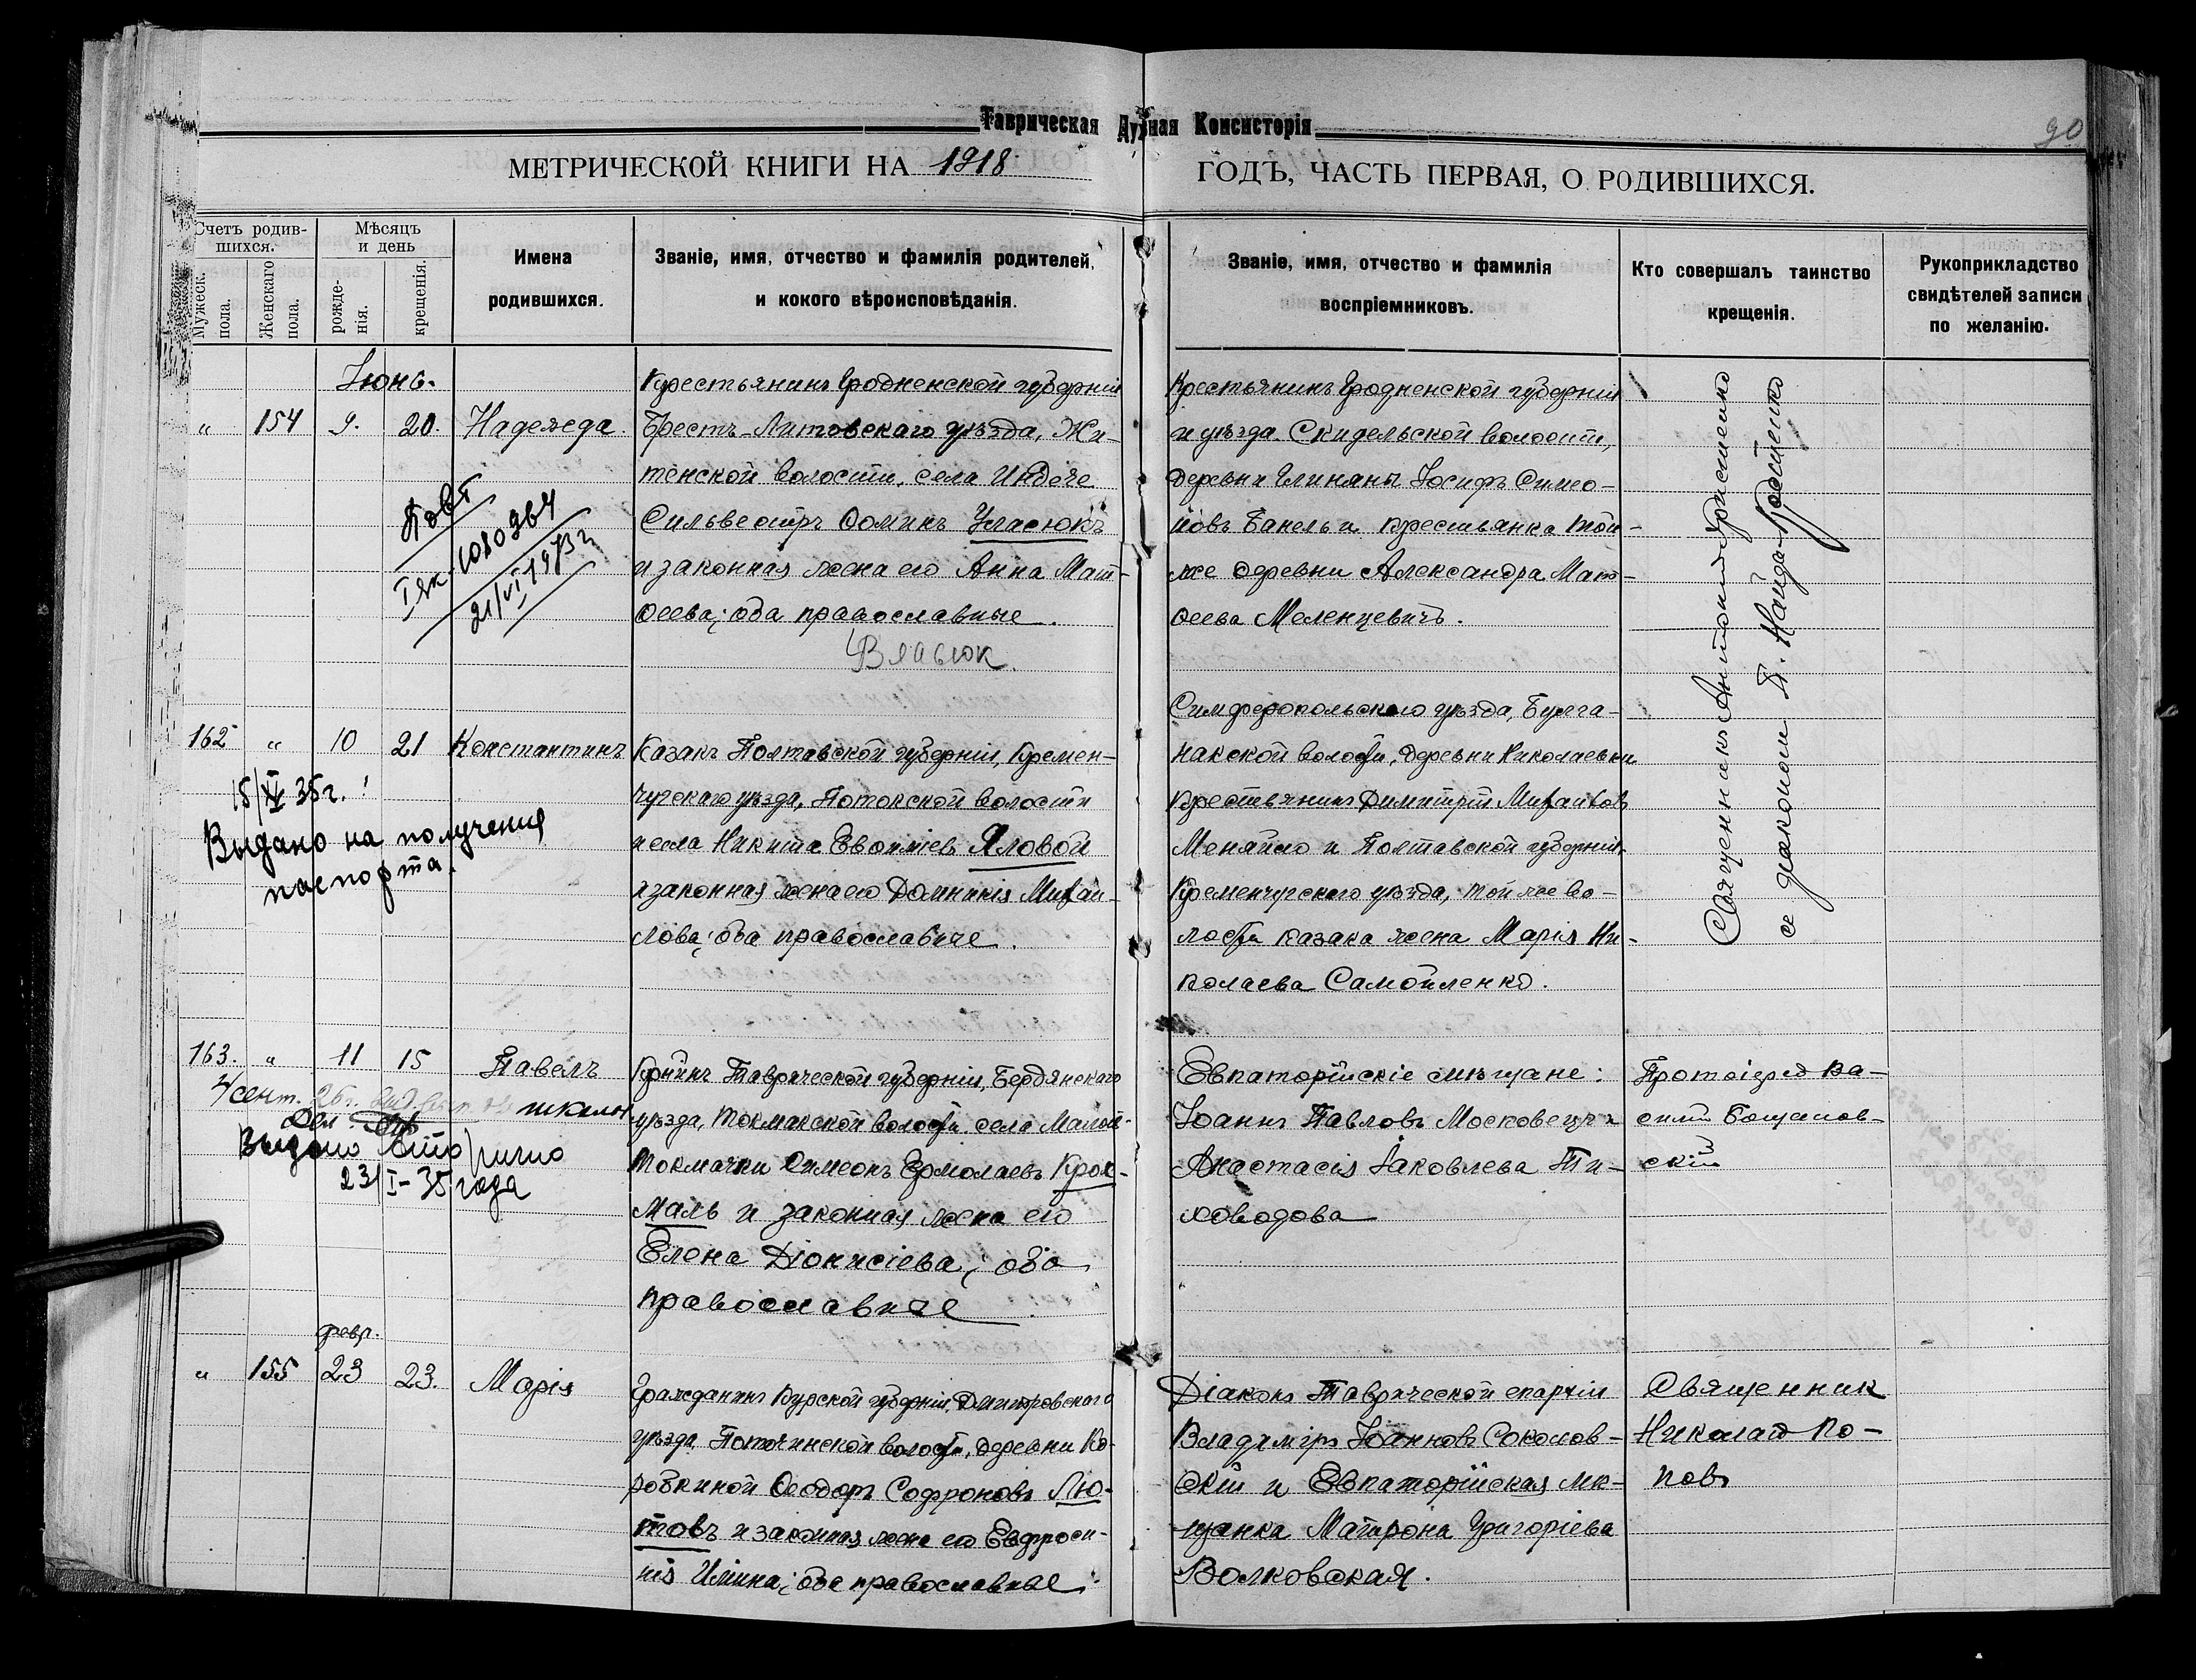 Таврическая Духная Консисторія
90
МЕТРИЧЕСКОЙ КНИГИ НА 1918 ГОДЪ, ЧАСТЬ ПЕРВАЯ, О РОДИВШИХСЯ.
Счетъ родив-
шихся.
Мужеск.
пола.
Женскаго
пола.
Мѣсяцъ
и день
рожде-
нія.
крещенія.
Имена
родившихся.
Званіе, имя, отчество и фамилія родителей,
и кокого вѣроисповѣданія.
Званіе, имя, отчество и фамилія
воспріемниковъ.
Кто совершалъ таинство
крещенія.
Рукоприкладство
свидѣтелей записи
по желанію.
Іюнь.
" 154 9. 20. Надежда.
Крестьянинъ Гродненской губерніи
Брестъ-Литовскаго уѣзда, Жи-
тенской волости, села
Сильвестръ Ѳоминъ Уласюкъ
и законная жена его Анна Мат-
ѳеева; оба православные.
Власюк.
Повт
1080364
21/VI 1973 г
Крестьянинъ Гродненской губерніи
и уѣзда. Скидельской волости,
деревни Глиняны Іосифъ Симео-
новъ Банель и крестьянка той-
же деревни Александра Мат-
ѳеева Меленцевичъ.
Священникъ Антоній
се діакономъ П. Найда-
162 " 10 21 Константинъ
Казакъ Полтавской губерніи, Кремен-
чугскаго уѣзда, Потокской волости
и села Никита Евѳиміевъ Яловой
и законная жена его Домникія Михаи-
лова; оба православные.
15/XI 35 г.
Выдано на получения
паспорта.
Симферопольскаго уѣзда, Булга-
накской волости, деревни Николаевки
крестьянинъ Димитрій Михаиловъ
Меняйло и Полтавской губерніи
Кременчугскаго уѣзда, той же во-
лости казака жена Марія Ни-
колаева Самойленко.
163. " 11 15 Павелъ
Кр-нинъ Таврической губерніи, Бердянскаго
уѣзда, Токмакской волости села Малой-
Токмачки Симеонъ Ермолаевъ Крох-
маль и законная жена его
Елена Діонисіева; оба
православные
4/сент. 26 г.
школы
Выдано вторично
23/I-35 года
Евпаторійскіе мѣщане:
Іоаннъ Павловъ Московецъ и
Анастасія Іаковлева Ти-
ховодова
Протоіерей Ва-
силій Бощанов-
скій
февр.
" 155 23 23. Марія
Гражданинъ Курской губерніи, Дмитровскаго
уѣзда, волости, деревни Ко-
робкиной Ѳеодоръ Софроновъ Лю-
товъ и законная жена его Евфроси-
нія Ильина; оба православные.
Діаконъ Таврической епархіи
Владиміръ Іоанновъ Соколов-
скій и Евпаторійская мѣ-
щанка Матрона Григоріева
Волковская.
Священник
Николай По-
повъ